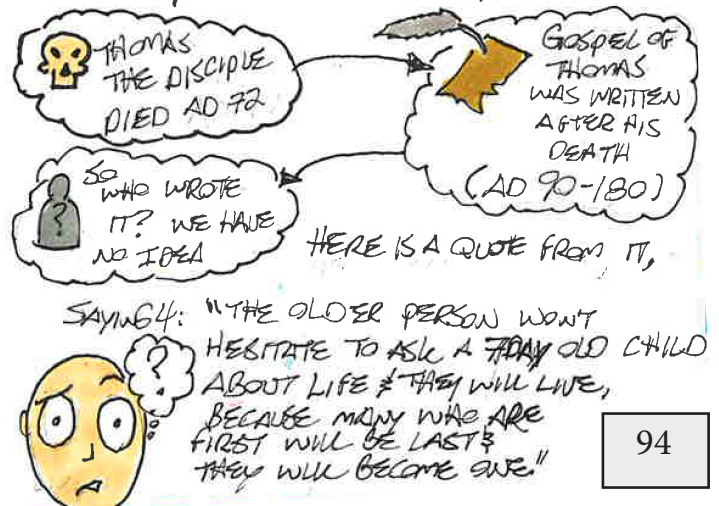 THOMAS
THE DISCIPLE
DIED AD 72
GOSPEL OF
THOMAS
WAS WRITTEN
AFTER HIS
DEATH
(AD 90-180)
SO
WHO WROTE
?
IT? WE HAVE
NO IDEA
HERE IS A QUOTE FROM IT,
SAYING 4: "THE OLDER PERSON WONT
?
HESITATE TO ASK A 7DAY OLD CHILD
ABOUT LIFE & THEY WILL LIVE,
BECAUSE MANY WHO ARE
FIRST WILL BE LAST &
THEY WILL BECOME ONE."
94